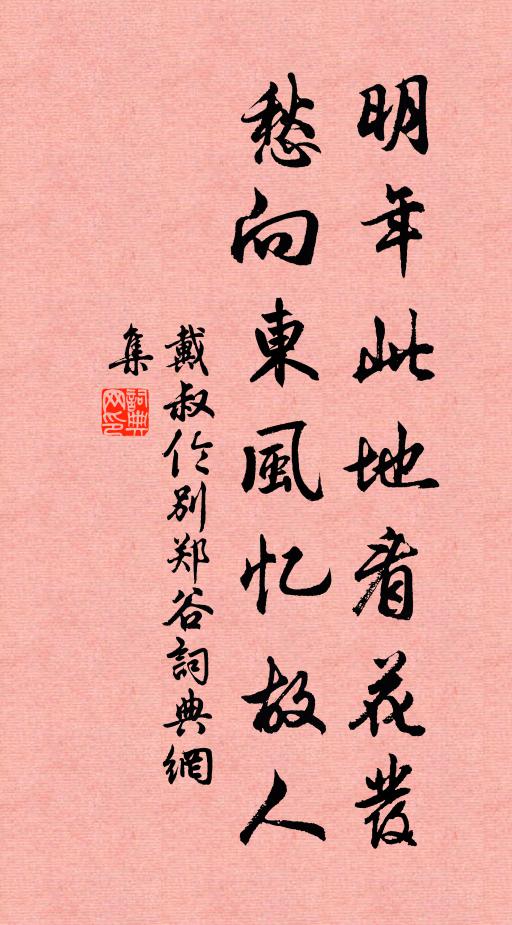 明年此地看花發
愁向東風忆故人
戴叔伦别郑谷詞典網
集
詞典网印